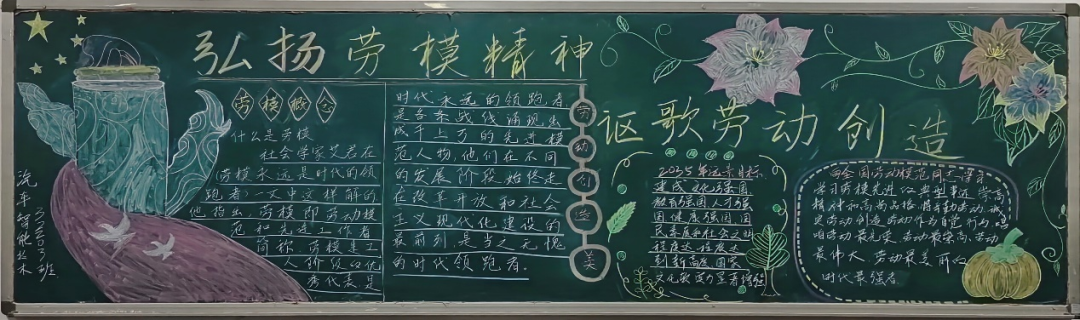 弘扬劳模精神
讴歌劳动创造
汽车智能技术
班
劳模概念
什么是劳模
社会学家艾君在
《劳模永远是时代的领
跑者》一文中这样解的
他指出，劳模即劳动模
范和先进工作者
简称，劳模是工
人阶级的优
秀代表，是
时代永远的领跑者
是各条战线涌现出
成千上万的先进模
范人物，他们在不同
的发展阶段始终走
在改革开放和社会
主义现代化建设的
最前列，是当之无愧
的时代领跑者。
劳动创造美
2035年远景目标
建成文化强国
教育强国人才强
国健康强国，国
民素质和社会文明
程度达
到新高度国家
文化软实力显著增强
向全国劳动模范同志学习
学习劳模先进的典型事迹，崇高
精神和高尚品格，
劳动创造
劳动最光荣、劳动最崇高、劳动
最伟大、劳动最美丽的
时代最强音